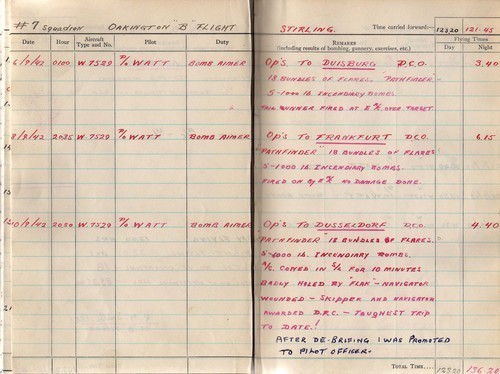 #7 Squadron OAKINGTON "B" FLIGHT STIRLING. Time carried forward:— 12320 121.45
Date Hour Aircraft Type and No. Pilot Duty REMARKS (Including results of bombing, gunnery, exercises, etc.) Flying Times Day Night
6/9/42 0100 W.7529 P/O WATT BOMB AIMER Op's TO DUISBURG D.C.O. 3.40
18 BUNDLES OF FLARES. "PATHFINDER"
5-1000 lb. INCENDIARY BOMBS.
OVER TARGET.
8/9/42 2035 W.7529 P/O WATT BOMB AIMER Op's TO FRANKFURT D.C.O. 6.15
"PATHFINDER" 18 BUNDLES OF FLARES
5-1000 lb. INCENDIARY BOMBS.
FIRED ON BY E/A NO DAMAGE DONE.
10/9/42 2030 W.7529 P/O WATT BOMB AIMER Op's TO DUSSELDORF D.C.O. 4.40
"PATHFINDER" 18 BUNDLES OF FLARES.
5-1000 lb. INCENDIARY BOMBS.
A/C CONED IN S/L FOR 10 MINUTES
BADLY HOLED BY "FLAK" - NAVIGATOR
WOUNDED - SKIPPER AND NAVIGATOR
AWARDED D.F.C. - TOUGHEST TRIP
TO DATE!
AFTER DE-BRIFING I WAS PROMOTED
TO PILOT OFFICER.
TOTAL TIME.... 12320 136.20